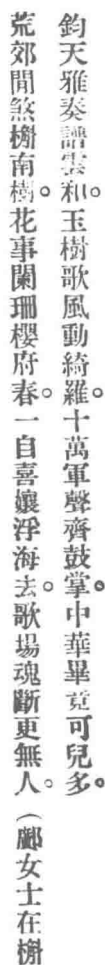 鈞天雅奏譜雲和。玉樹歌風動綺羅。十萬軍聲齊鼓掌。中華畢竟可兒多。
荒郊閒煞榭南樹。花事闌珊櫻府春。一自喜孃浮海去。歌場魂斷更無人。（鄺女士在榭